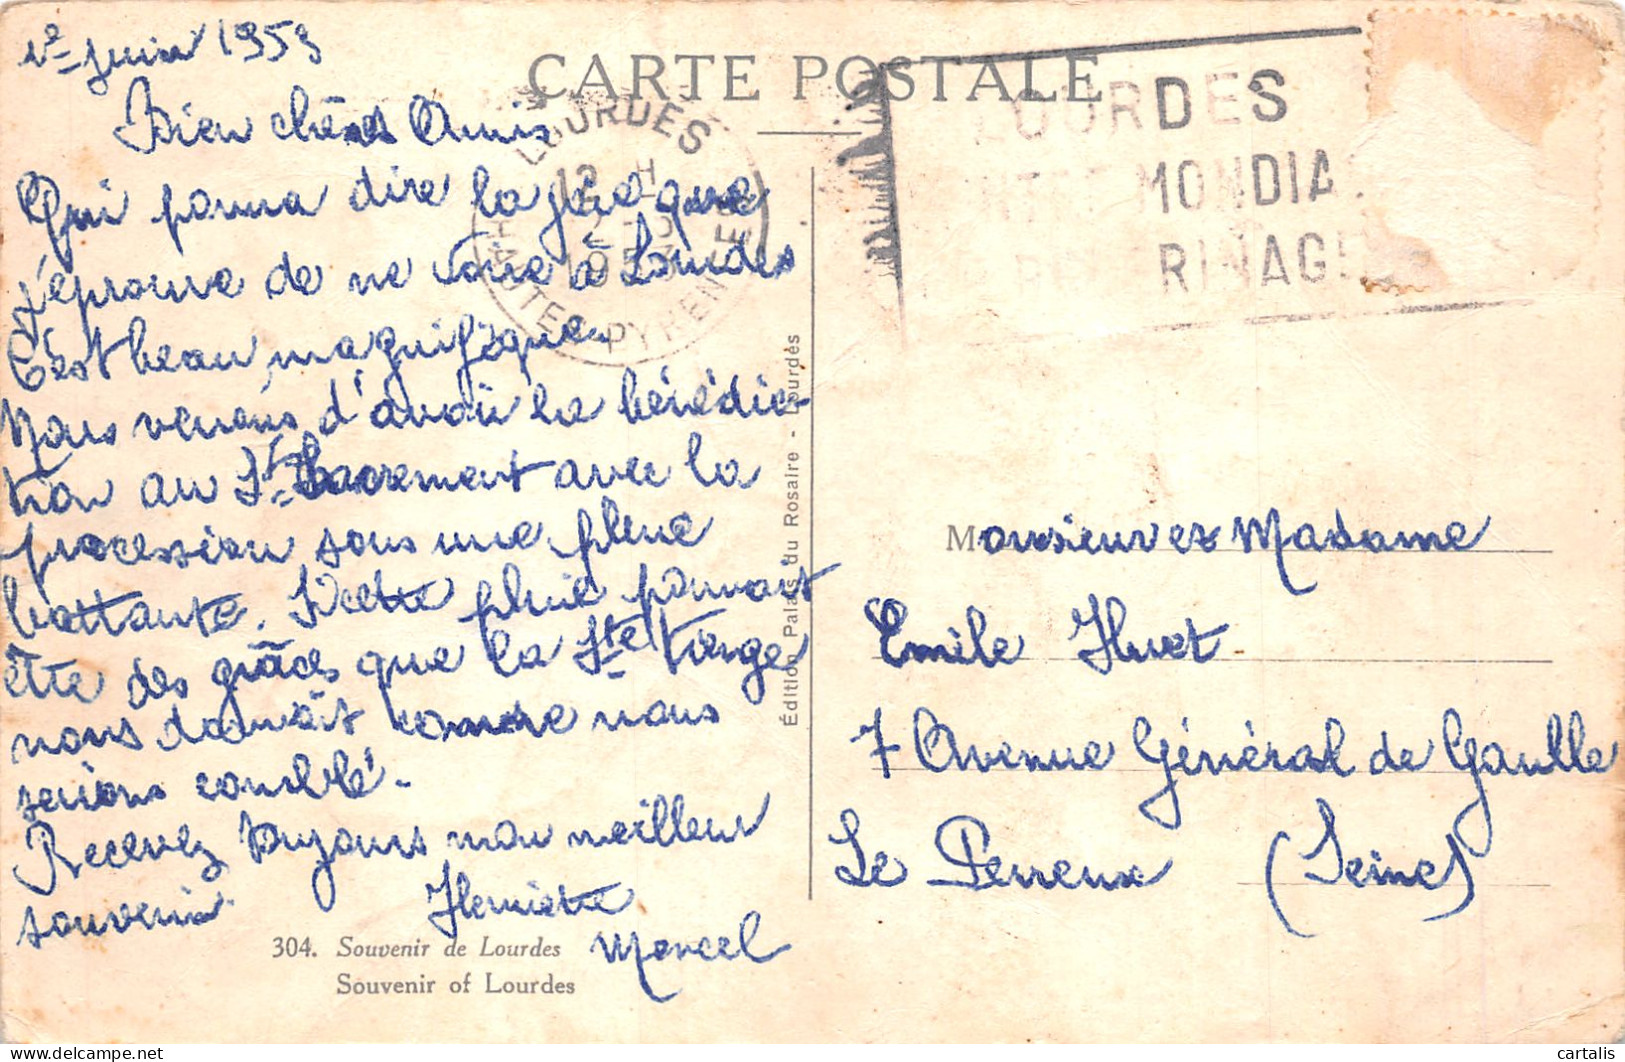 1e juin 1953
CARTE POSTALE
Bien chers Amis
Qui pourra dire la joie que
j'éprouve de me voire à Lourdes
C'est beau, magnifique.
Nous venons d'avoir la bénédic-
tion au St Sacrement avec la
procession sous une pleuie
battante. Si cette pleuie pouvait
être des grâces que la Ste Vierge
nous donnait comme nous
serions comblé.
Recevez toujours mon meilleur
souvenir
Henriette
Marcel
304. Souvenir de Lourdes
Souvenir of Lourdes
LOURDES
HAUTES PYRENEES
LOURDES
MONDIA
RINAGE
Édition Palais du Rosaire - Lourdes
Monsieur et Madame
Emile Huet
7 Avenue Général de Gaulle
Le Perreux (Seine)
cartalis